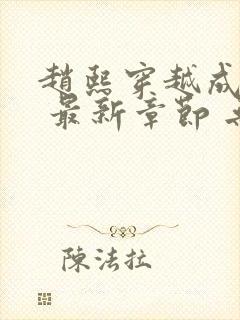 趙熙穿越成
最新章節
陳法拉